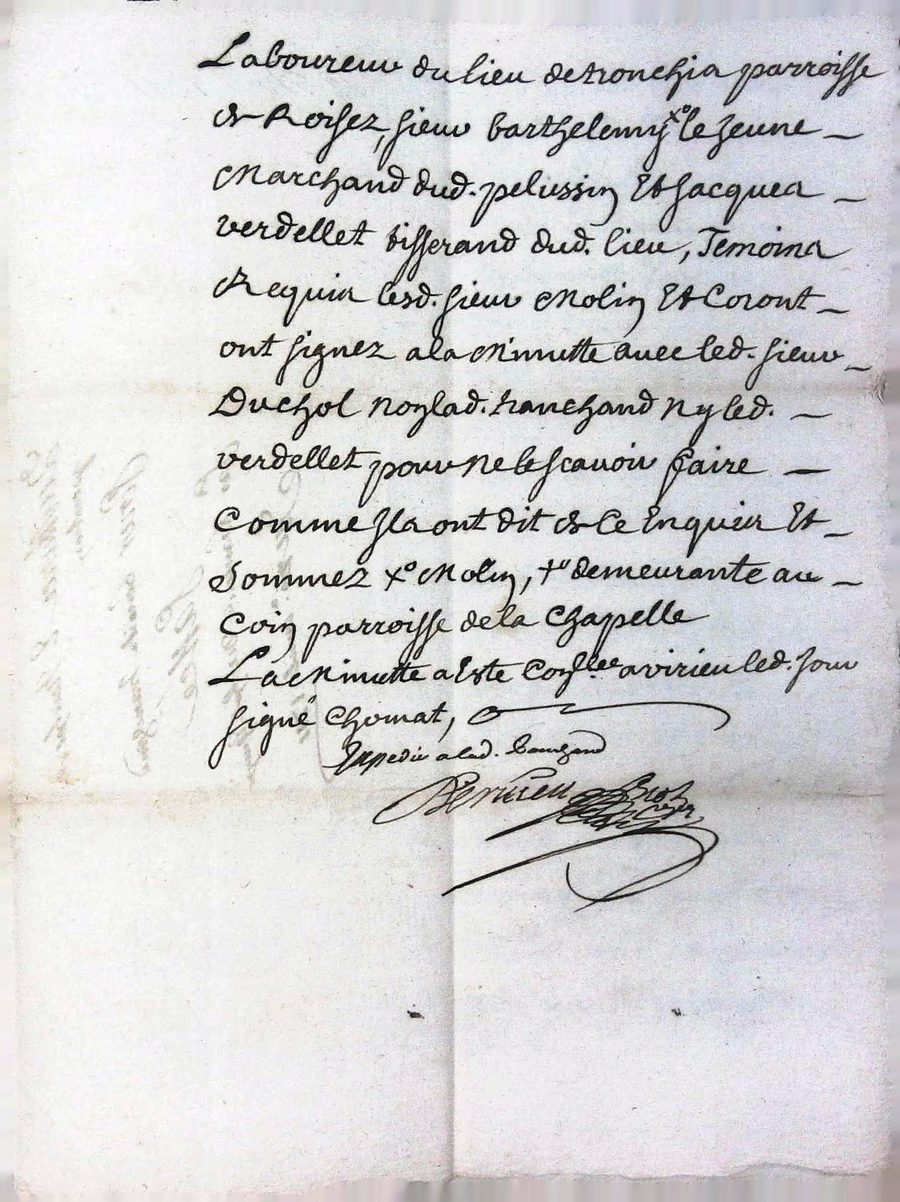 Laboureur du lieu de tronchia parroisse
de Roisez, sieur barthelemy x.o le Jeune
Marchand dud. pelussin Et Jacques
verdellet tisserand dud. lieu, Temoins
Requis lesd. sieur Molin Et Coront
ont signez a la Minutte avec led. sieur
Duchol Noy lad. tranchand Ny led.
verdellet pour Ne le scavoir faire
Comme Ils ont dit de Ce Enquis Et
Sommez x.o Molin, demeurante au
Coin parroisse de la Chapelle
La Minutte a Este Con.llee a virieu led. Jour
signé Chomat,
Expedié a lad. tranchand